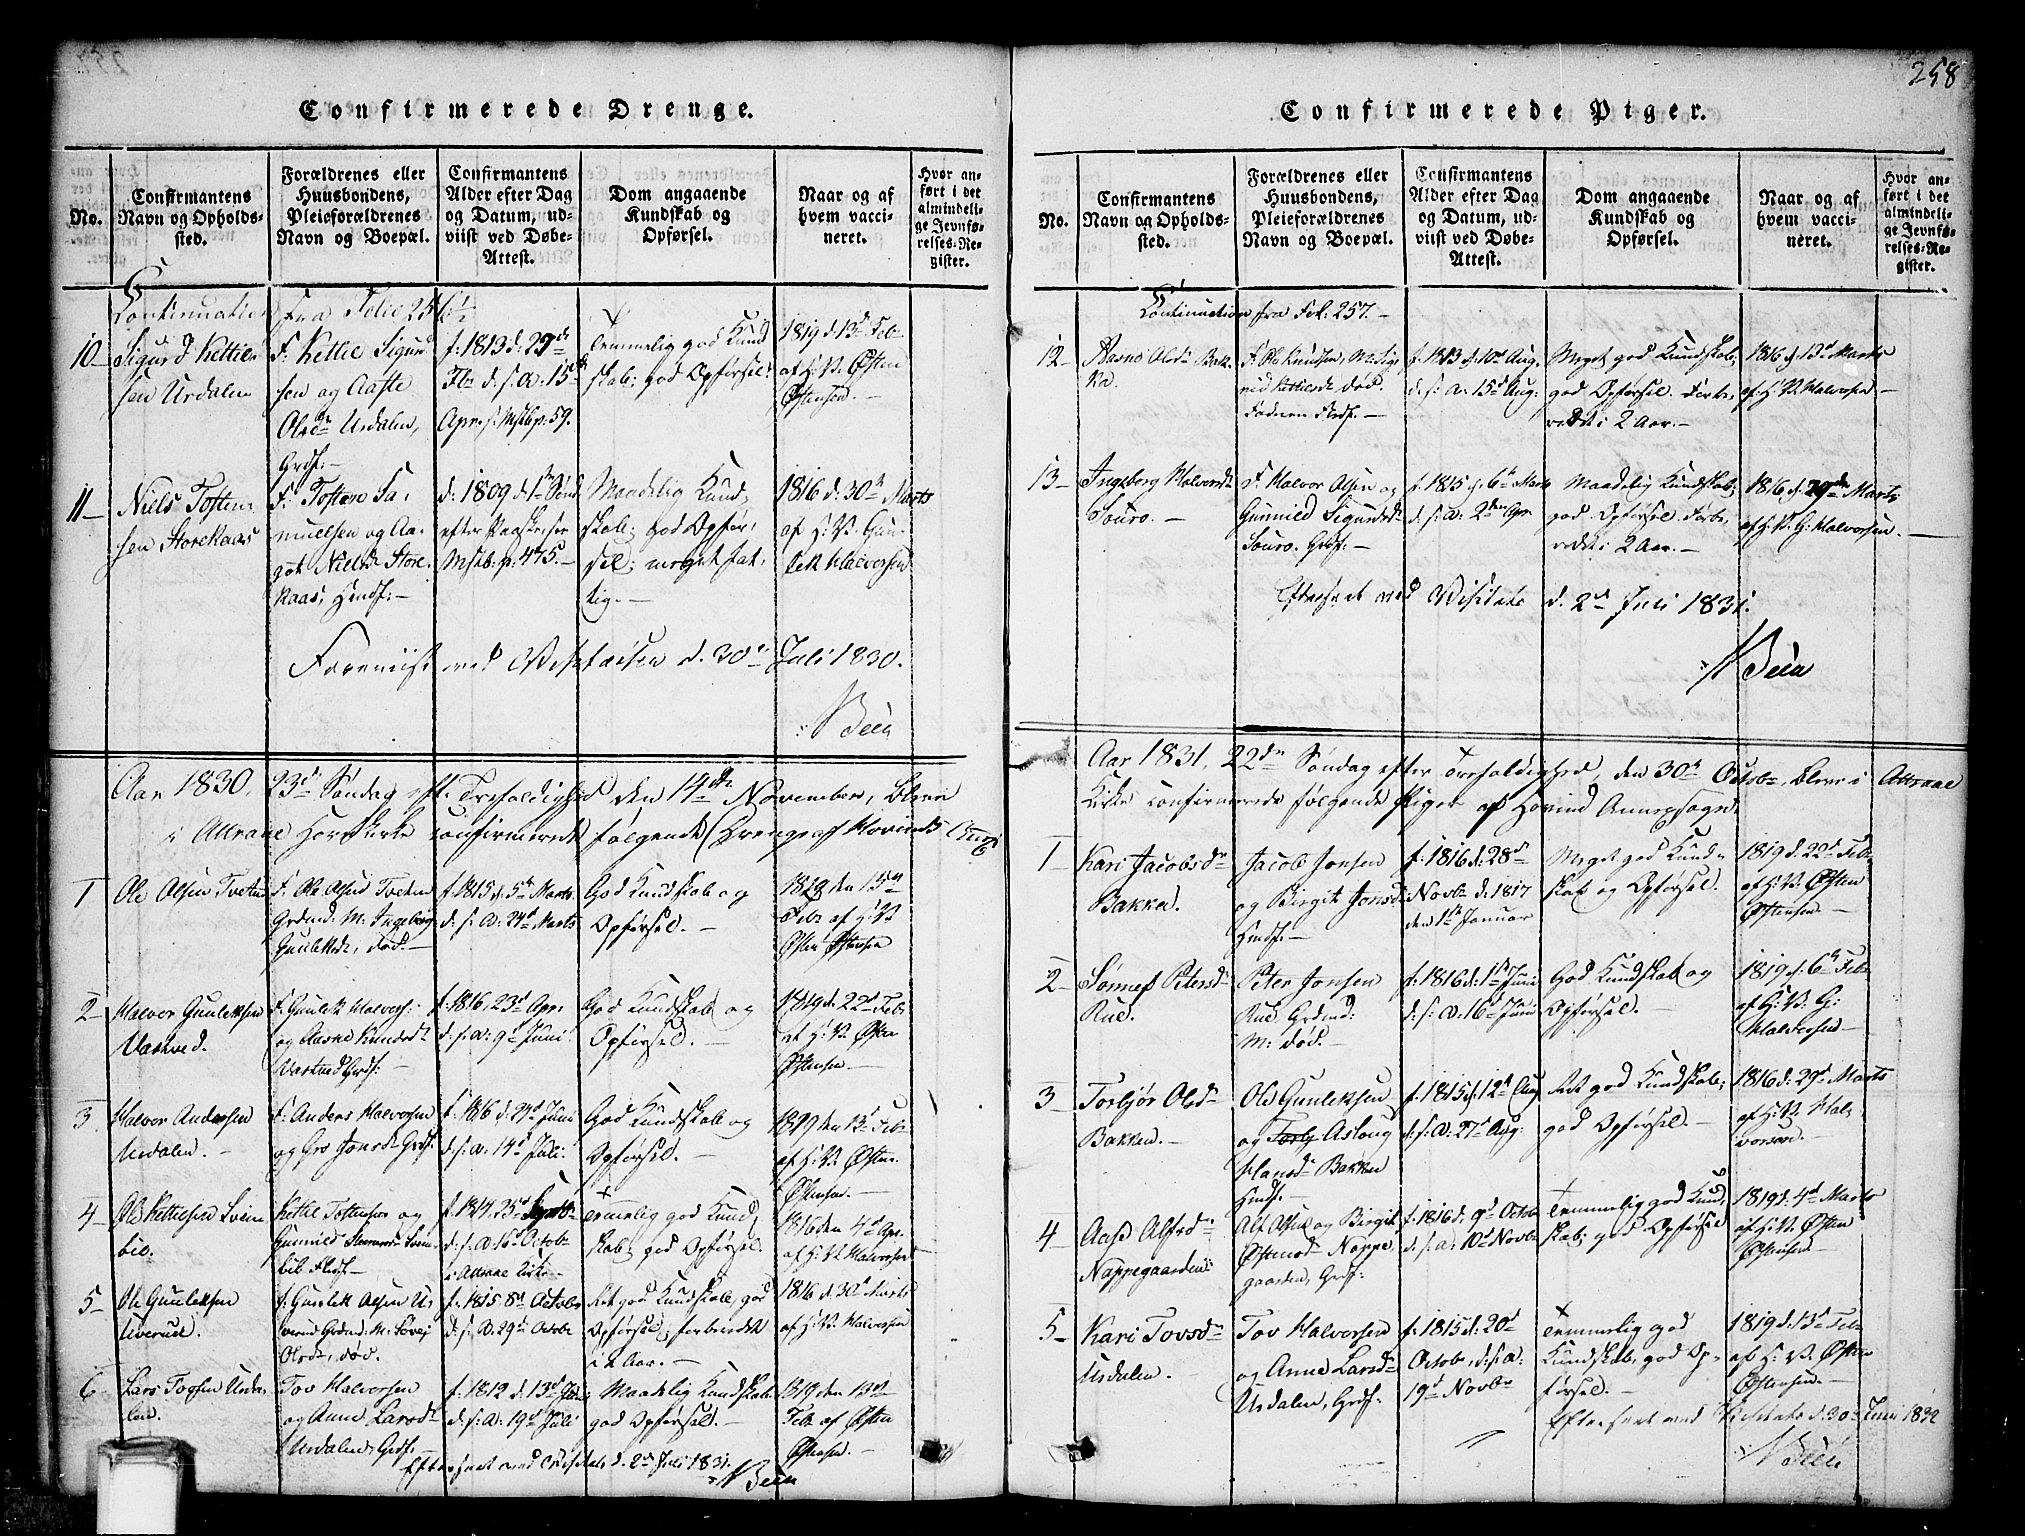 258
Confirmerede Drenge.
No.
Confirmantens
Navn og Opholds-
sted.
Forældrenes eller
Huusbondens,
Pleieforældrenes
Navn og Boepæl.
Confirmantens
Alder efter Dag
og Datum, ud-
viist ved Døbe-
Attest.
Dom angaaende
Kundskab og
Opførsel.
Naar og af
hvem vacci-
neret.
Hvor an-
ført i det
almindeli-
ge Jevnfø-
relses-Re-
gister.
Continuation fra Folie
10
Sigurd Kettil-
sen Urdalen
F: Kettil Sigurd
sen og Aaste
Olsdr Urdalen,
Grdf:
f: 1813 d: 29de
d. s. a. 15de
Apr. s. Mstb p. 59.
Temmelig god Kund
skab; god Opførsel:
1819 d. 13d Feb
af H: V: Østen
Østensen.
11
Niels Tosten
sen Storekaas
F: Tosten Sa-
muelsen og Aa-
got Nielsdr Store-
kaas; Hmdf:
d. 1809 d. 1ste Sønd
efter Paaske; see
Mstb: p: 475.
Maadelig Kund-
skab; god Opfør-
sel; meget fat-
tig.
1816 d: 30te Marts
af H: V: Gun-
lek Halvorsen
Foreviist ved Visitatsen d. 30te Juli 1830.
NBeen
Aar 1830, 23de Søndag eft. Trefoldighed den 14de November, bleve
i Attraae Hovedkirke confirmerede følgende Drenge af Hovinds
1
Ole Olsen Tveten
F. Ole Olsen Tveten
Grdmd. M. Ingeborg
Gunleksdr, død.
f. 1815 d: 5te Marts
d. s. a: 24d Marts
God Kundskab og
Opførsel.
1819 den 15de
Febr af H: V:
Østen Østensen
2
Halvor Gunleksen
Vashved.
F. Gunlek Halvors:
og Aasne Knudsdr
Vashved Grdf:
f: 1816, 23d Apr.
d. s. a: 9de Juni:
God Kundskab og
Opførsel.
1819 d: 22d Feb:
af H: V: Østen
Østensen
3
Halvor Andersen
Urdalen.
F: Anders Halvorsen
og Gro Jonsdr Grdf:
f. 1816 d: 24d Juni
d. s. a: 14d Juli:
God Kundskab og
Opførsel.
1819 den 13d Feb:
af H: V: Østen
Østensen.
4
Ole Kettilsen Svine-
bil.
Kettil Tostensen og
Gunnild
bil
f. 1814, 25d Septbr
d. s. a. 16d Octobr
i Attraae Kirke
Temmelig god Kund
skab; god Opførsel.
1816 den 4d Apr.
af H: V: Halvorsen
5
Ole Gunleksen
Uverud.
F. Gunlek Olsen U-
verud Grdmd: M. Svej
Olsdr, død.
f. 1815 8d Octobr
d. s. a. 29d Octobr
Ret god Kundskab, god
Opførsel, forberedet
i 2 Aar.
1816 d. 30d Marts
af H: V: Halvorsen
6
Lars Tovsen Urda-
len.
Tov Halvorsen
og Anne Larsdr
Urdalen, Grdf.
f. 1812 d. 13d Juni
d. s. a: 19d Juli
Maadelig Kundskab
god Opførsel.
1819 den 13d
Feb: af Østen
Østensen.
Efterseet ved Visitats d. 2den Juli 1831.
NBeen
Confirmerede Piger.
No.
Confirmantens
Navn og Opholds-
sted.
Forældrenes eller
Huusbondens,
Pleieforældrenes
Navn og Boepæl.
Confirmantens
Alder efter Dag
og Datum, ud-
viist ved Døbe-
Attest.
Dom angaaende
Kundskab og
Opførsel.
Naar og af
hvem vacci-
neret.
Hvor an-
ført i det
almindeli-
ge Jevnfø-
relses-Re-
gister.
Continuation fra Fol: 257.
12
Aasne Olsdr Bak-
ka.
F. Ole Knudsen, M: Sig-
rid Kettilsdr død.
f: 1813 d: 10de Aug.
d. s. a: 15d Aug:
Meget god Kundskab;
god Opførsel. Forbe-
redet i 2 Aar.
1816 d. 13d Marts
af H: V: Halvorsen
13
Ingeborg Halvorsdr
Souro.
F. Halvor Olsen og
Gunnild Sigurdsdr
Souro. Grdf:
f. 1815 d. 6te Marts
d. s. a: 2den Apr.
Maadelig Kundskab;
god Opførsel. Forbe-
redet i 2 Aar.
1816 d. 29de Marts
af H: V: G: Halvorsen.
Efterseet ved Visitats d. 2den Juli 1831.
NBeen
Aar 1831, 22de Søndag efter Trefoldighed, den 30te Octobr, bleve i Attraae
Kirke confirmerede følgende Piger af Hovind Annexsogn.
1
Kari Jacobsdr
Bakken.
Jacob Jonsen
og Birgit Jonsdr
Hmdf.
f: 1816 d: 28d
Novbr d: 1817
den 1ste Januar
Meget god Kund-
skab og Opførsel.
1819 d. 22d Feb:
af H: V: Østen
Østensen.
2
Sønnef Petersdr
Rue.
Peter Jonsen
Rue, Grdmd:
M: død.
f. 1816 d: 1ste Juni
d. s: a: 16d Juni
God Kundskab og
Opførsel.
1819 d: 6te Feb:
af H: V: G:
Halvorsen
3
Torbjør Olsdr
Bakken.
Ole Gunleksen
og Torbj Aslaug
Hansdr Bakken
Hmdf.
f: 1815 d. 12te Aug
d. s: a: 27d Aug:
Ret god Kundskab;
god Opførsel.
1816 d. 29d Marts
af H: V: Hal-
vorsen.
4
Aase Alfsdr
Nappegaarden:
Alf og Birgit
Østensdr Nappe
gaarden, Grdf:
f: 1816 d. 9d Octobr
d. s: a: 10d Novbr
Temmelig god Kund-
skab; god Opførsel
1819 d. 4d Marts
af H: V: Østen
Østensen
5
Kari Tovsdr
Urdalen.
Tov Halvorsen
og Anne Larsdr
Urdalen, Grdf:
f: 1815 d: 20d
Octobr, d. s. a:
19d Novbr
Temmelig god
Kundskab, god Op-
førsel.
1819 d. 13d Feb
af H: V: Østen
Østensen.
Efterseet ved Visitats d. 30te Juni 1832
NBeen